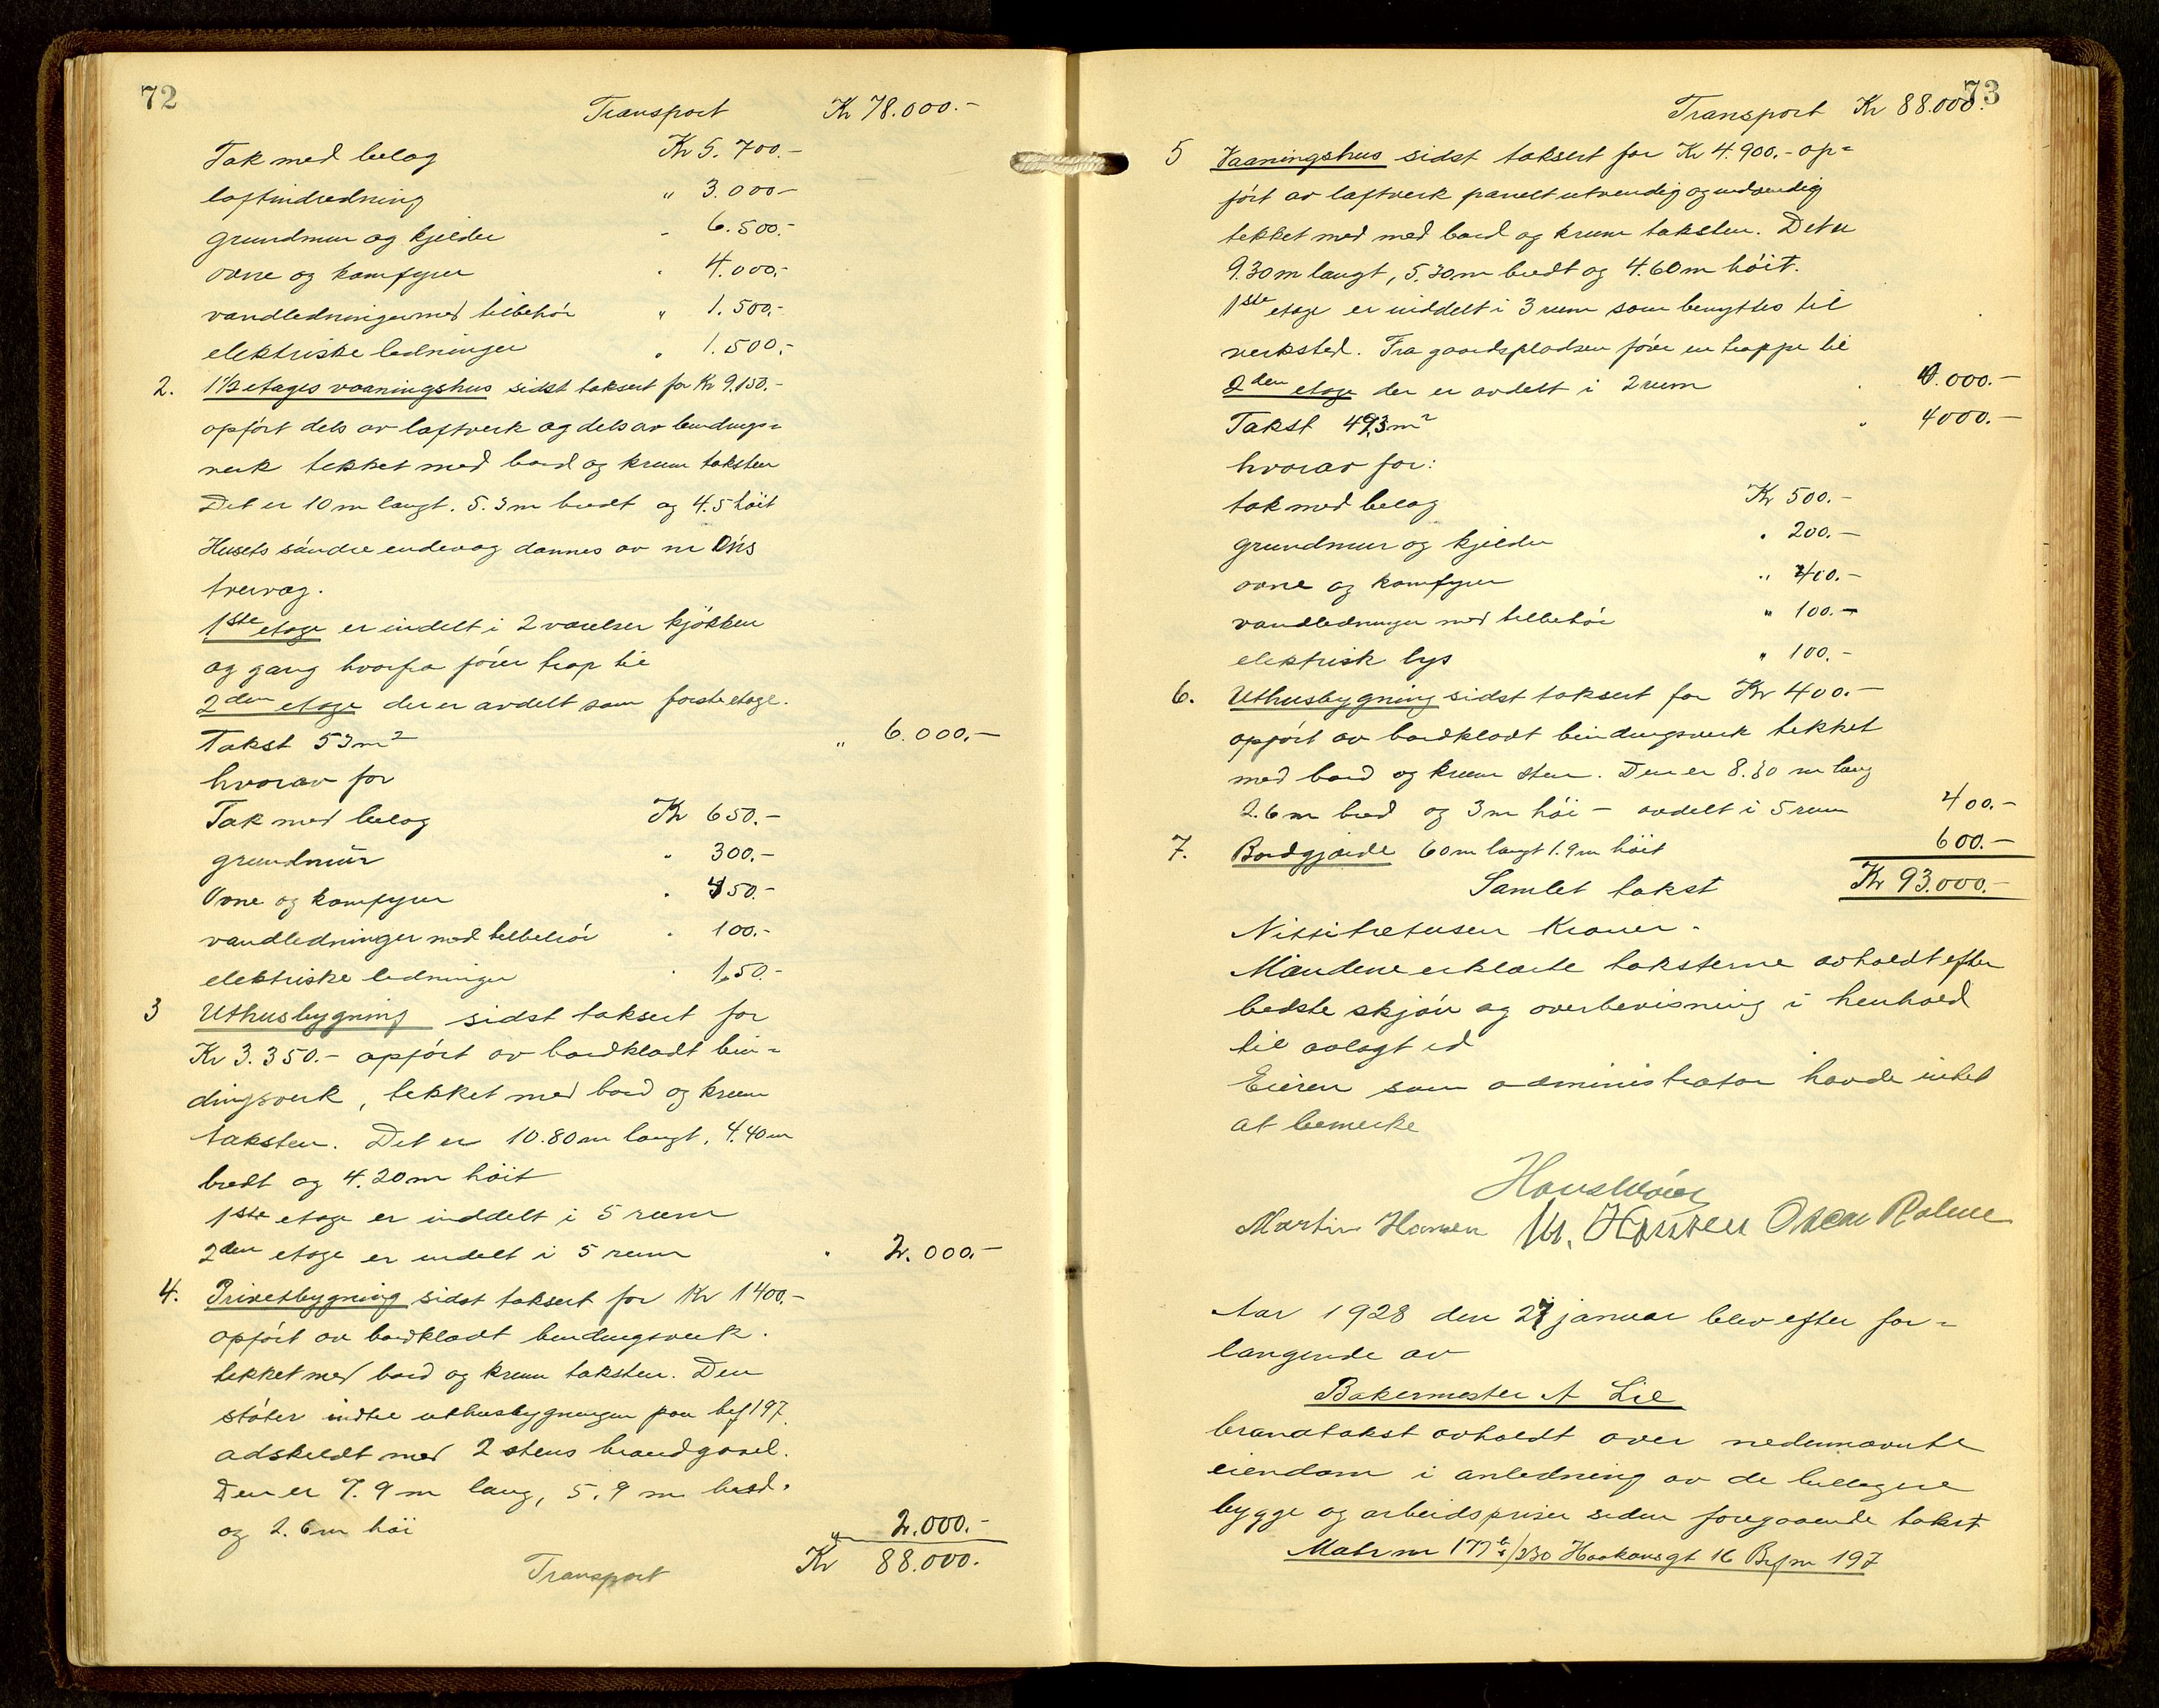 72
Transport Kr 78.000.-
Tak med belæg Kr 5.700.-
loftindredning " 3.000-
grundmur og kjelder " 6.500.-
ovne og komfyrer " 4.000.-
vandledninger med tilbehör " 1.500.-
elektriske ledninger " 1.500.-
2. 1 1/2 etages vaaningshus sidst taksert for Kr 9.150.-
opfört dels av laftverk og dels av bindings=
verk tekket med bord og krum taksten
Det er 10 m langt. 5.3m bredt og 4.5 höit
Husets söndre endevæg dannes av nr 1's
trevæg.
1ste etage er indelt i 2 værelser kjökken
og gang hvorfra förer trap til
2den etage der er avdelt som förste etage.
Takst 53m2 " 6.000.-
hvorav for
Tak med belæg Kr 650.-
grundmur " 300.-
Ovne og komfyrer " 450.-
vandledninger med tilbehör " 100.-
elektriske ledninger " 150.-
3 Uthusbygning sidst taksert for
Kr 3.350.- opfört av bordklædt bin=
dingsverk, tekket med bord og krum
taksten. Det er 10.80m langt. 4.40m
bredt og 4.20m höit
1ste etage er inddelt i 5 rum
2den etage er indelt i 5 rum " 2.000.-
4. Privetbygning sidst taksert for Kr 1400.-
opfört av bordklædt bindingsverk.
tekket med bord og krum taksten. Den
stöter indtil uthusbygningen paa bef 197.
adskeldt med 2 stens brandgavl.
Den er 7.9 m lang, 5.9 m bred.
og 2.6m höi " 2.000.-
Transport Kr 88.000.
73
Transport Kr 88.000.
5 Vaaningshus sidst taksert for Kr 4.900.- op=
fört av laftverk panelt utvendig og indvendig
tekket med med bord og krum taksten. Det er
9.30m langt, 5.30m bredt og 4.60m höit.
1ste etage er inddelt i 3 rum som benyttes til
verksted. Fra gaardspladsen förer en trappe til
2den etage der er avdelt i 2 rum .000.-
Takst 49.3m2 " 4000.-
hvorav for:
tak med belæg Kr 500.-
grundmur og kjelder " 200.-
ovne og komfyrer "
vandledninger med tilbehör " 100.-
elektrisk lys " 100.-
6. Uthusbygning sidst taksert for Kr 400.-
opfört av bordklædt bindingsverk tekket
med bord og krum sten. Den er 8.30 m lang
2.6m bred og 3m höi - avdelt i 5 rum 400.-
7. Bordgjærde 60m langt 1.9m höit 600.-
Samlet takst Kr 93.000.-
Nittitretusen Kroner.
Mændene erklærte taksterne avholdt efter
bedste skjön og overbevisning i henhold
til avlagt ed
Eieren som administrator havde intet
at bemerke
Martin Hansen M. Hansen Oscar
Aar 1928 den 27 januar blev efter for=
langende av
Bakermester A Lie
branntakst avholdt over nedennævnte
eiendom i anledning av de billigere
bygge og arbeidspriser siden foregaaende takst
Matr nr 177 b/230 Haakonsgt 16 Bef nr 197